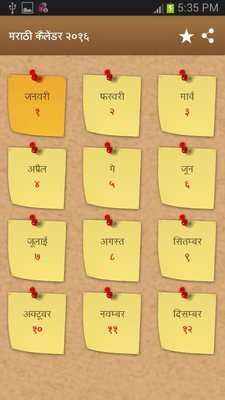 5:35 PM
मराठी कॅलेंडर २०१६
जनवरी
१
फरवरी
२
मार्च
३
अप्रैल
४
मे
५
जून
६
जूलाई
७
अगस्त
८
सितम्बर
९
अक्टूबर
१०
नवम्बर
११
दिसम्बर
१२